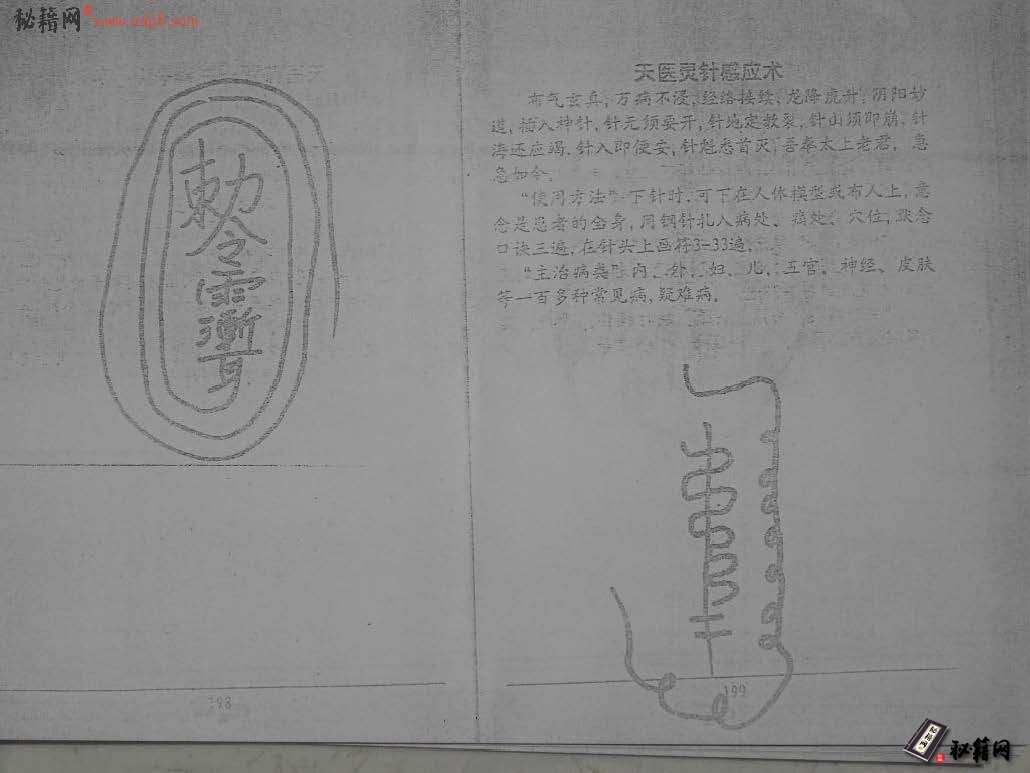 秘籍网
敕令
天医灵针感应术
布气玄真，万病不侵，经络接续，龙降虎升，阴阳妙
道，插入神针，针天须要开，针地定教裂，针山须即崩，针
海还应竭，针入即便安，针鬼悉首灭，吾奉太上老君，急
急如令。
“使用方法”下针时，可下在人体模型或布人上，意
念是患者的全身，用钢针扎入病处、痛处、穴位，默念
口诀三遍，在针头上画符3-33遍。
“主治病类”内、外、妇、儿、五官、神经、皮肤
等一百多种常见病、疑难病。
198
199
秘籍网